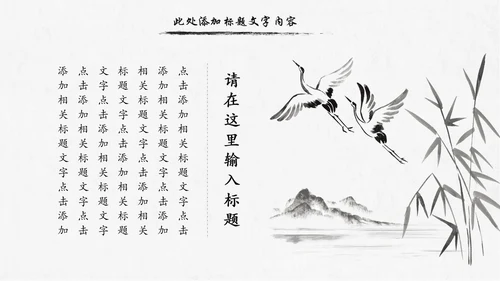 此处添加标题文字内容
请在这里输入标题
点击添加相关标题文字点击
添加相关标题文字点击添加
相关标题文字点击添加相关
标题文字点击添加相关标题
文字点击添加相关标题文字
点击添加相关标题文字点击
添加相关标题文字点击添加